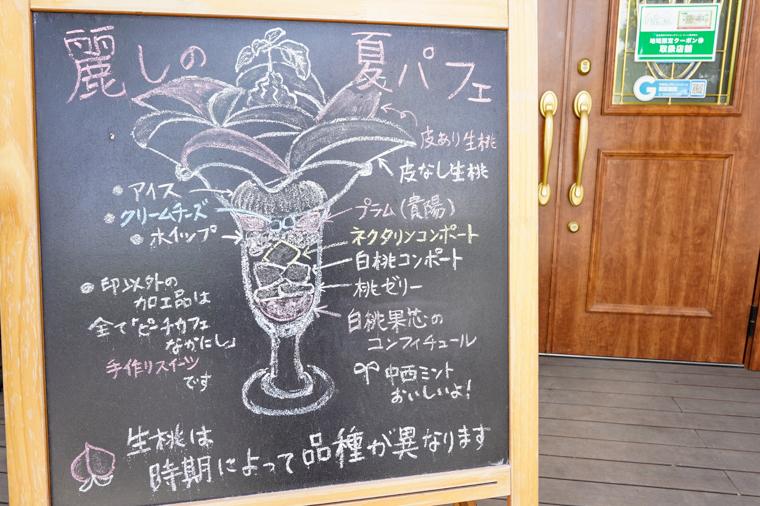 麗しの 夏パフェ
皮あり生桃
皮なし生桃
●アイス
●クリームチーズ
●ホイップ
プラム(貴陽)
ネクタリンコンポート
白桃コンポート
桃ゼリー
白桃果芯の
コンフィチュール
中西ミント
おいしいよ!
●印以外の
加工品は
全て「ピーチカフェ
なかにし」
手作りスイーツ
です
生桃は
時期によって品種が異なります
地域限定クーポン券
取扱店舗
G